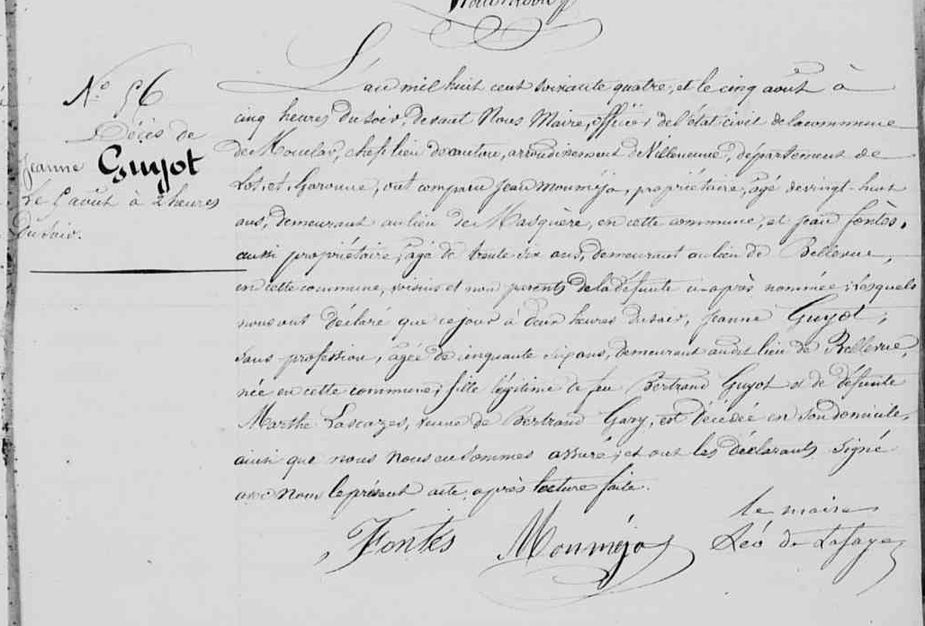 N.° 56
Décès de
Jeanne Guyot
le 5 août à 2 heures
du soir.
L'an mil huit cent soixante quatre, et le cinq août à
cinq heures du soir, devant Nous Maire, officier de l'état civil de la commune
de Monclar, chef lieu de canton, arrondissement de Villeneuve, département de
Lot-et-Garonne, ont comparu Jean Mouméjà, propriétaire, âgé de vingt-huit
ans, demeurant au lieu de Masquère, en cette commune, et Jean Fontès,
aussi propriétaire, âgé de trente six ans, demeurant au lieu de Bellevue,
en cette commune, voisins et non parents de la défunte ci-après nommée; lesquels
nous ont déclaré que ce jour à deux heures du soir, Jeanne Guyot,
sans profession, âgée de cinquante six ans, demeurant audit lieu de Bellevue,
née en cette commune, fille légitime de feu Bertrand Guyot et de défunte
Marthe Lascazes, veuve de Bertrand Gary, est décédée en son domicile,
ainsi que nous nous en sommes assuré; et ont les déclarants signé
avec Nous le présent acte, après lecture faite.
Fontès Mouméjà
le maire
Léo de Lafaye